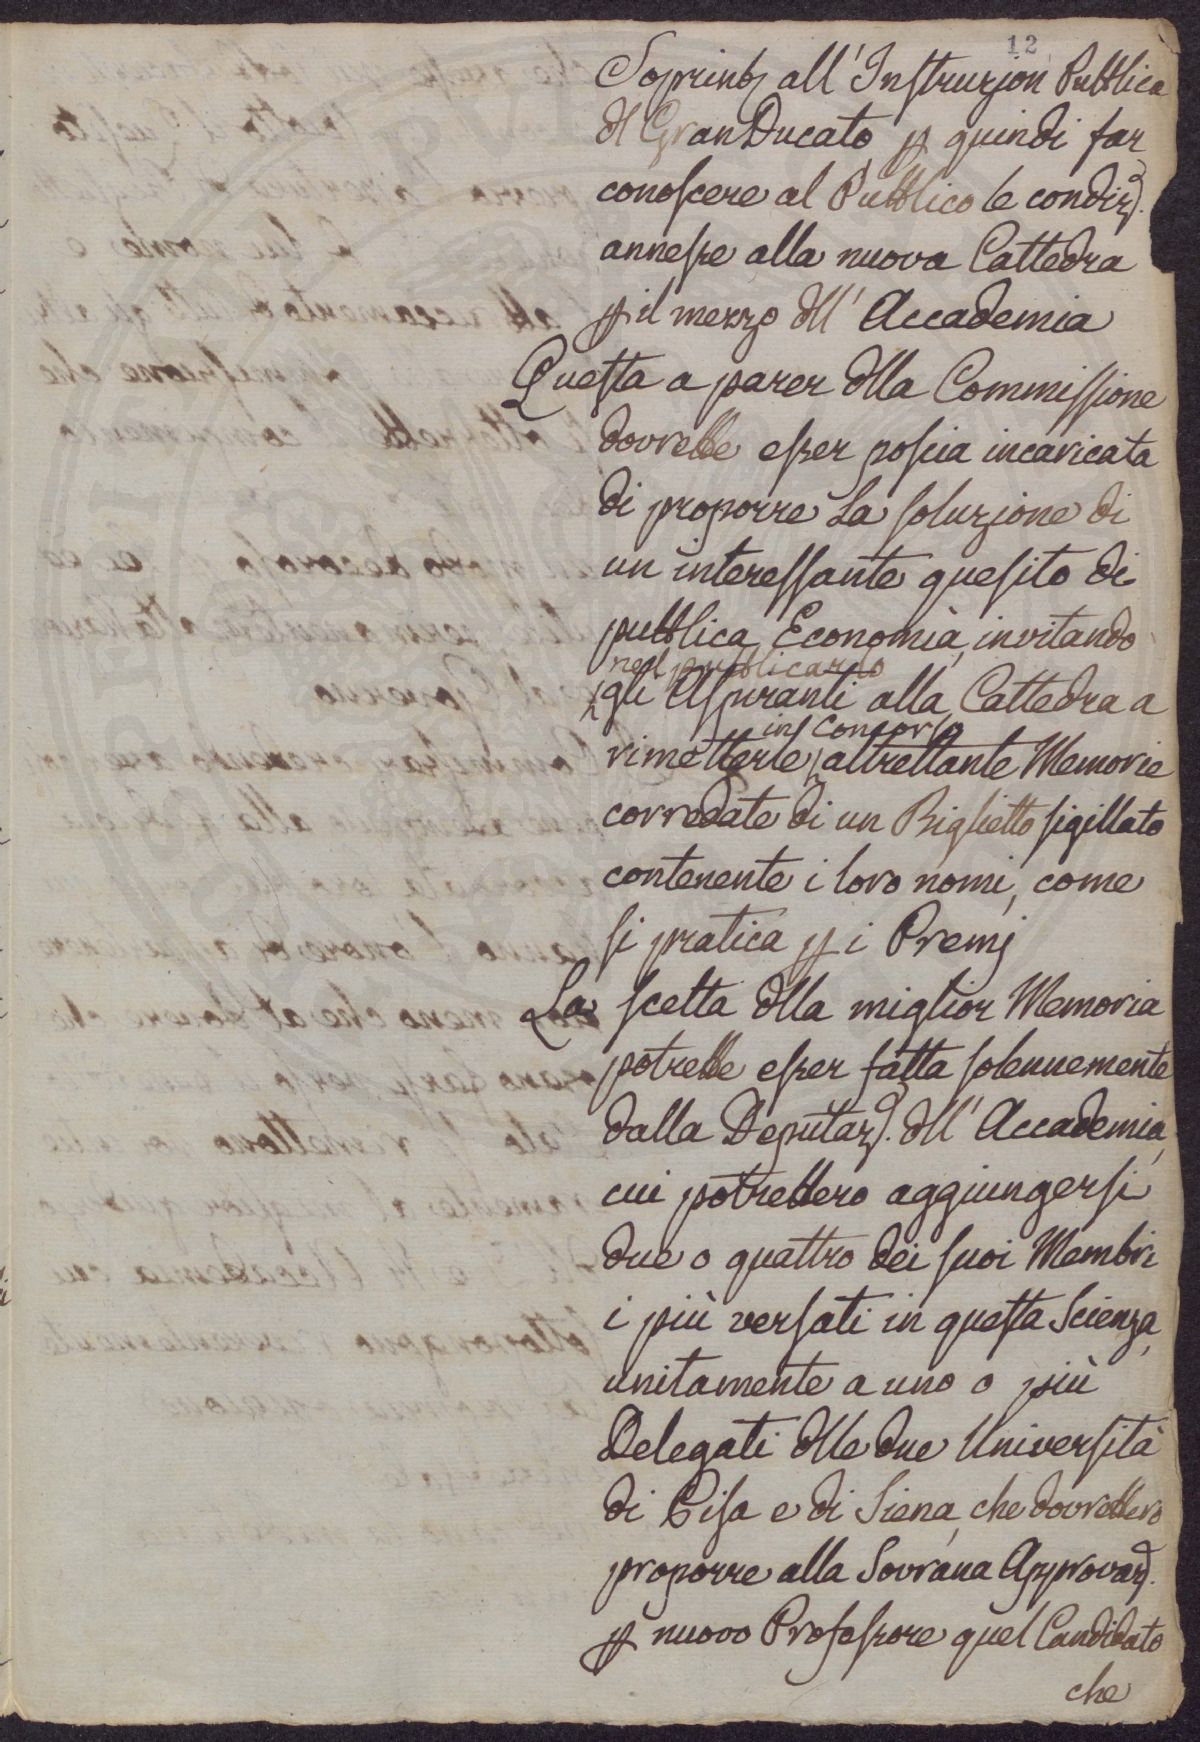 12
Soprint. all' Instruzion Pubblica
dl GranDucato, p quindi far
conoscere al Pubblico le condiz.
annesse alla nuova Cattedra
p il mezzo dll' Accademia
Questa a parer dlla Commissione
dovrebbe esser poscia incaricata
di proporre La soluzione di
un interessante quesito di
pubblica Economia, invitando
nel pubblicarlo
gli Aspiranti alla Cattedra a
in concorso
rimetterle altrettante Memorie
corredate di un Biglietto sigillato
contenente i loro nomi, come
si pratica p i Premj
La scelta dlla miglior Memoria
potrebbe esser fatta solennemente
dalla Deputaz. dll' Accademia,
cui potrebbero aggiungersi
due o quattro dei suoi Membri
i più versati in questa Scienza,
unitamente a uno o più
Delegati dlle due Università
di Pisa e di Siena, che dovrebbero
proporre alla Sovrana Approvaz.
p nuovo Professore quel Candidato
che